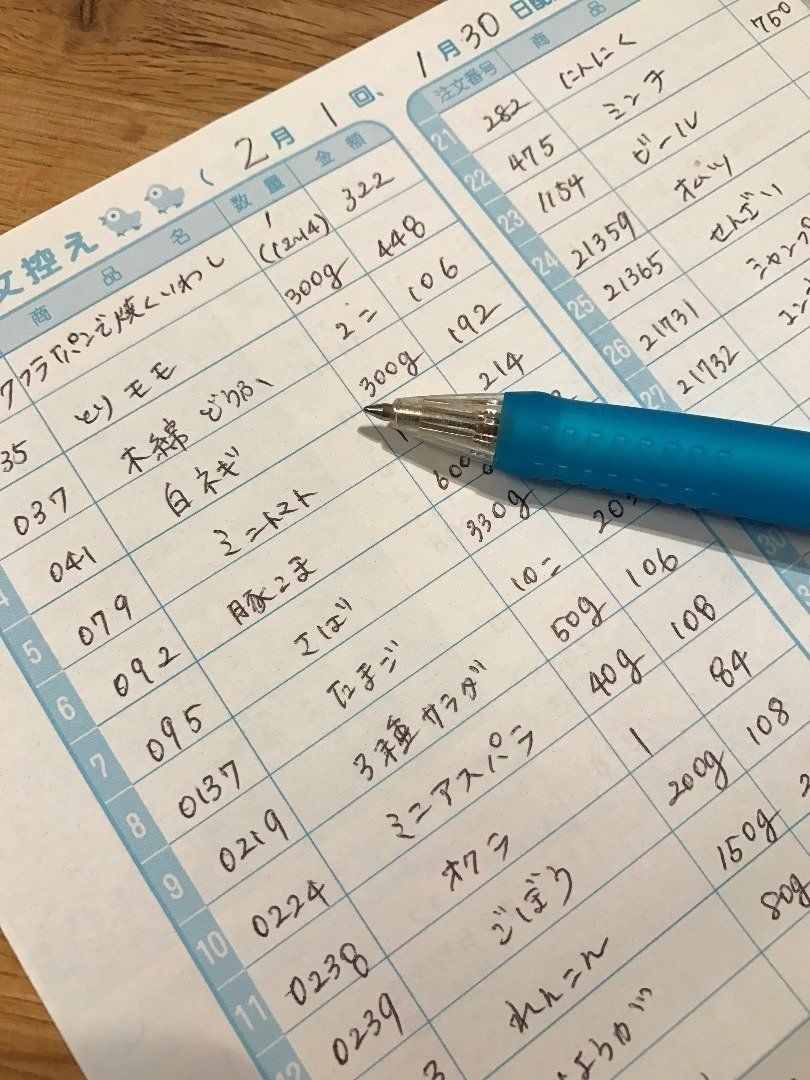 文控え ( 2月 1回、 1月30日配
商品名 数量 金額
フライパンで焼くいわし 1 (12~14) 322
35 とりモモ 300g 448
037 木綿どうふ 2コ 106
041 白ネギ 300g 192
5 079 ミニトマト 214
6 092 豚こま
7 095 さば 330g
8 0137 たまご 10コ
9 0219 3種サラダ 50g 106
10 0224 ミニアスパラ 40g 108
11 0238 オクラ 1 84
12 0239 ごぼう 200g 108
れんこん 150g
80g
注文番号 商品
21 282 にんにく 750
22 475 ミンチ
23 1154 ビール
24 21359 オムツ
25 21365 せんざい
26 21731 シャンプ
27 21732
30